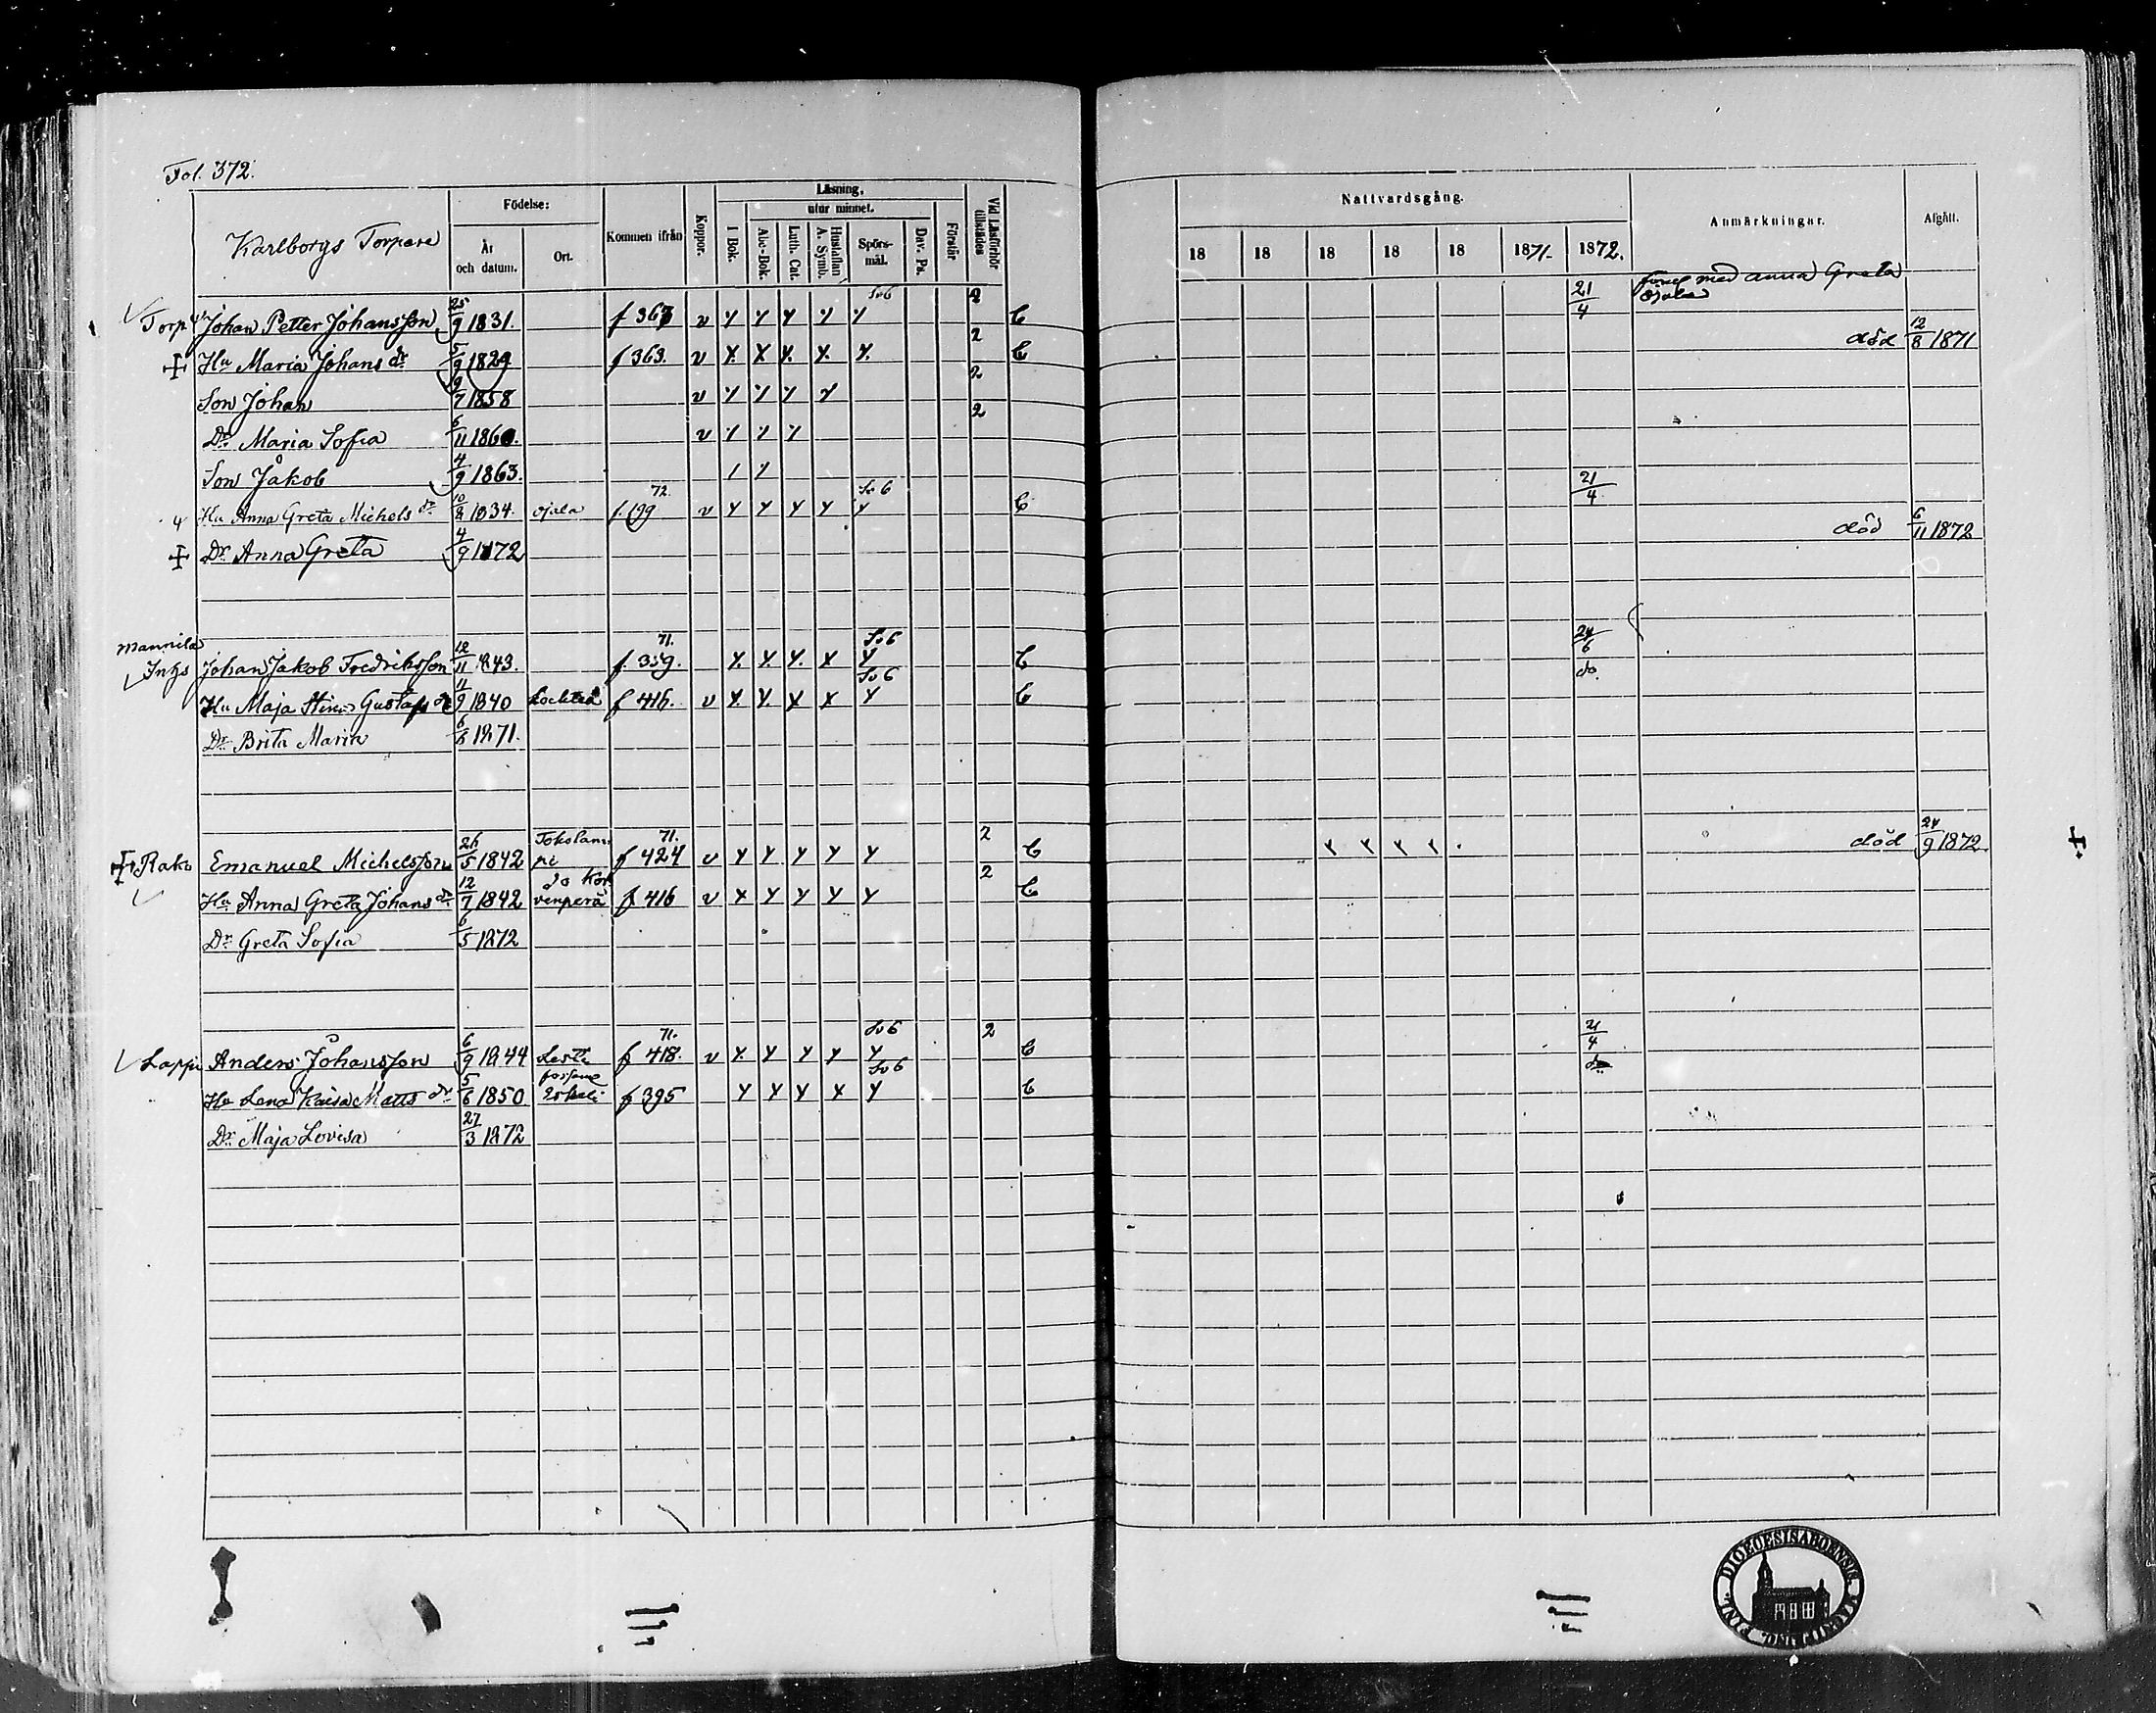 Fol. 372.
Karlborgs Torpare
Födelse:
År och datum.
Ort.
Kommen ifrån
Koppor.
Läsning,
utur minnet.
I Bok.
Abc-Bok.
Luth. Cat.
Hustaflan A. Symb.
Spörs-mål.
Dav. Ps.
Förstår
Vid Läsförhör tillstädes
Nattvardsgång.
18 18 18 18 18 1871. 1872.
Anmärkningar.
Afgått.
Torp Johan Petter Johansson 25/9 1831. f 363 v Y Y Y Y Y Sv6 2 C 21/4 med Anna Greta Ojala
Hu Maria Johans dr 5/9 1829 f 363. v X X X X X 2 C död 12/8 1871
Son Johan 19/7 1858 v 2
Dr Maria Sofia 6/11 1860. v 2
Son Jakob 4/9 1863.
Hu Anna Greta Michels dr 10/8 1834. Ojala 72. f. 199 v Y Y Y Y Y Sv 6 C 21/4
Dr Anna Greta 4/9 1872 död 6/11 1872
Mannila
Inhs Johan Jakob Fredriksson 12/11 1843. 71. f. 359. X X Y X Y Sv 6 C 24/6
Hu Maja Stina Gustafs dr 11/9 1840 f 416. v X X X X Y Sv 6 C do.
Dr Brita Maria 6/6 1871.
Rako Emanuel Michelsson 26/5 1842 71. f 424 v Y Y Y Y Y 2 C Y Y Y Y död 24/9 1872.
Hu Anna Greta Johans dr 12/7 1842 do Korvenperä f 416 v X Y Y Y Y 2 C
Dr Greta Sofia 6/5 1872
Lappi Anders Johansson 6/9 1844 71. f 418. v X Y Y Y Y Sv6 2 C 21/4
Hu Lena Kaisa Matts dr 5/6 1850 f 395 Y Y Y X Y Sv 6 C do
Dr Maja Lovisa 27/3 1872
DIOECESIS ABOENSIS. MAGNI DUC. FINL.